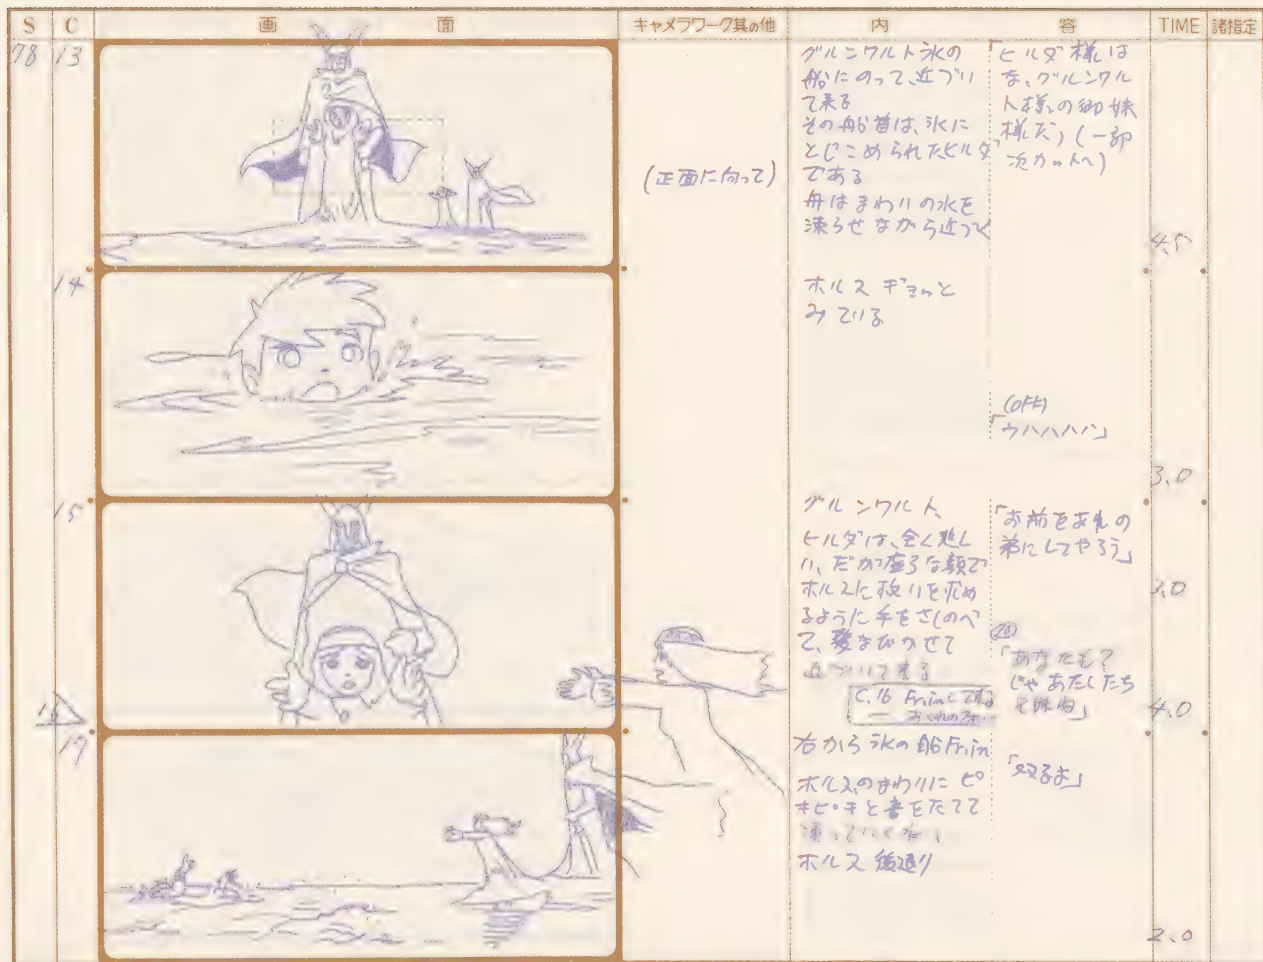 S C 画 面 キャメラワーク其の他 内 容 TIME 諸指定
78 13
グルンワルト氷の
船にのって、近づい
て来る
その船首は、氷に
とじこめられたヒルダ
である
舟はまわりの水を
凍らせながら近づく
(正面に向って)
「ヒルダ様は
な、グルンワル
ト様の御妹
様だ」(一部
次カットへ)
4.5
14
ホルス ギョッと
みている
(OFF)
「ウハハハハ」
3.0
15
グルンワルト、
ヒルダは、全く悲し
い、だが な顔で
ホルスに救いを求め
るように手をさしのべ
て、髪なびかせて
近づいて来る
「お前をあれの
弟にしてやろう」
3.0
「あなたも?
じゃあたしたち
兄妹ね」
C.16 Fr.inして
4.0
16
17
右から氷の船Fr.in
ホルスのまわりにピ
キピキと音をたてて
凍っていく水
ホルス 後退り
2.0